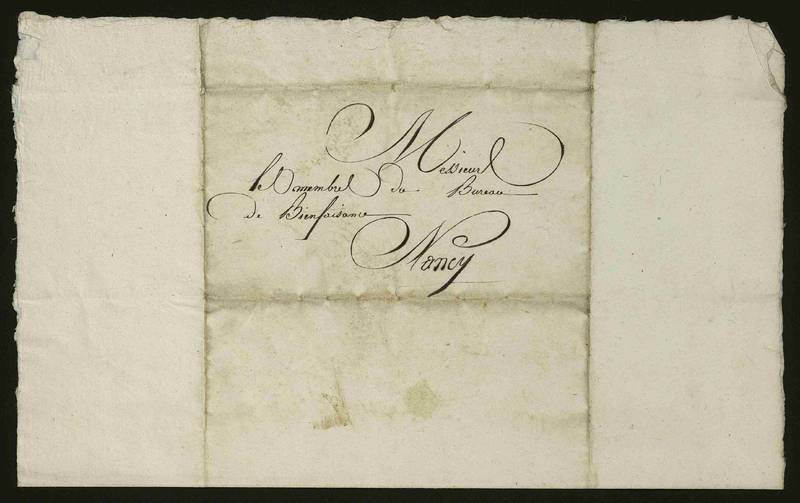 Messieurs
les membres du Bureau
de Bienfaisance
Nancy